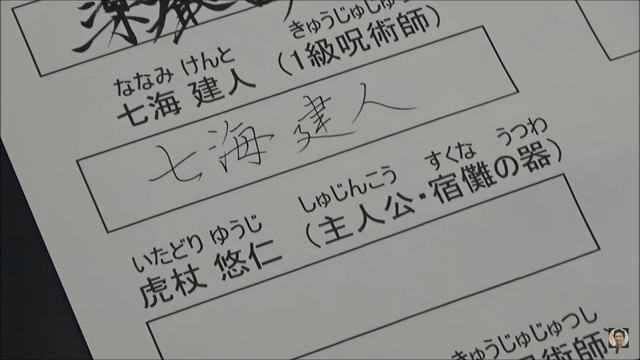 ななみ けんと
七海 建人（1級呪術師）
七海 建人
いたどり ゆうじ しゅじんこう すくな うつわ
虎杖 悠仁（主人公・宿儺の器）
きゅうじゅじゅつし